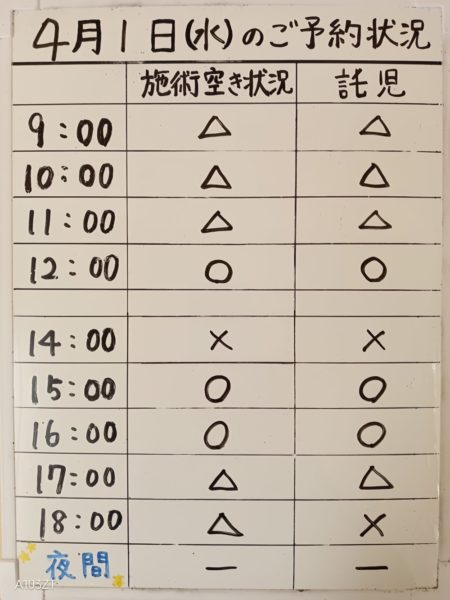 4月1日(水)のご予約状況
施術空き状況 託児
9:00 △ △
10:00 △ △
11:00 △ △
12:00 ○ ○
14:00 × ×
15:00 ○ ○
16:00 ○ ○
17:00 △ △
18:00 △ ×
夜間 ー ー
A103ZT